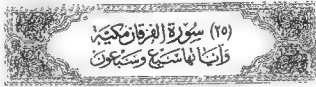 (٢٥) سُورَة الفُرقَان مَكيَّة
وَآيَاتُهَا سَبْعٌ وَسَبْعُونَ